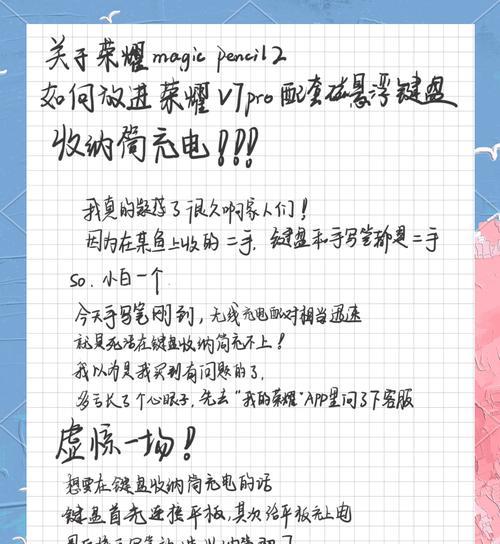 关于荣耀magic pencil2
如何放进荣耀V7pro配套磁悬浮键盘
收纳筒充电!!!
我真的 了很久啊家人们!
因为在某鱼上收的二手,键盘和手写笔都是二手
so.小白一个
今天手写笔刚到,无线充电配对相当迅速
就是死活在键盘收纳筒充不上!
我以为是我买到有问题的了,
多亏长了个心眼子,先去"我的荣耀"APP里问了下客服
虚惊一场!
想要在键盘收纳筒充电的话
键盘首先连接平板,其次给平板充上电